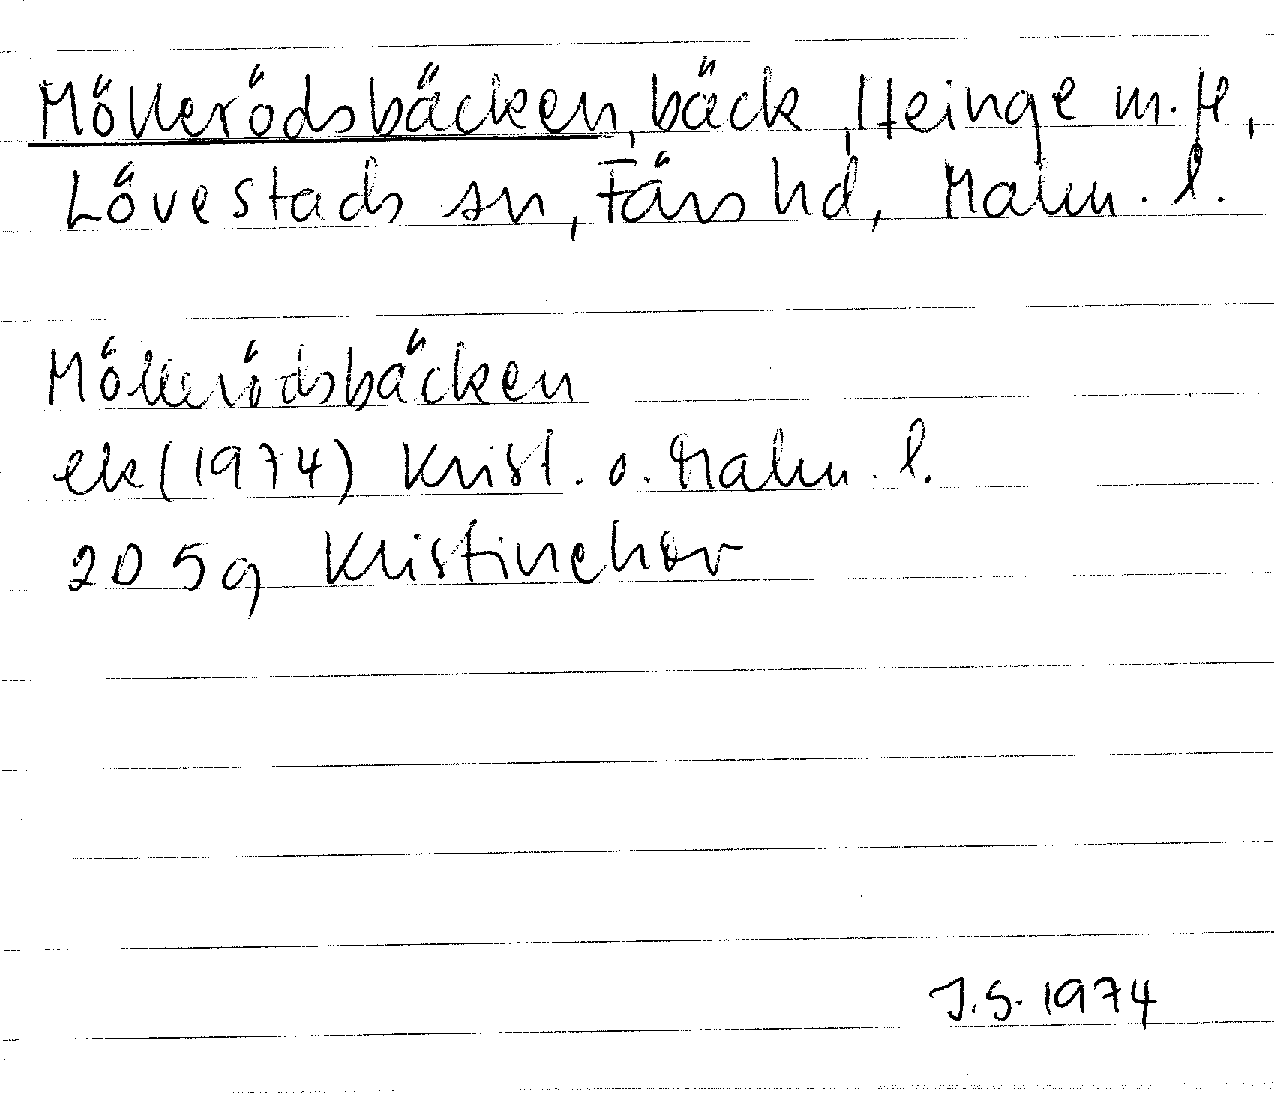 Möllerödsbäcken, bäck, Heinge m.fl,
Lövestads sn, Färs hd, Malm. l.
Möllerödsbäcken
ek (1974) Krist. o. Malm. l.
205g Kristinehov
J.S. 1974